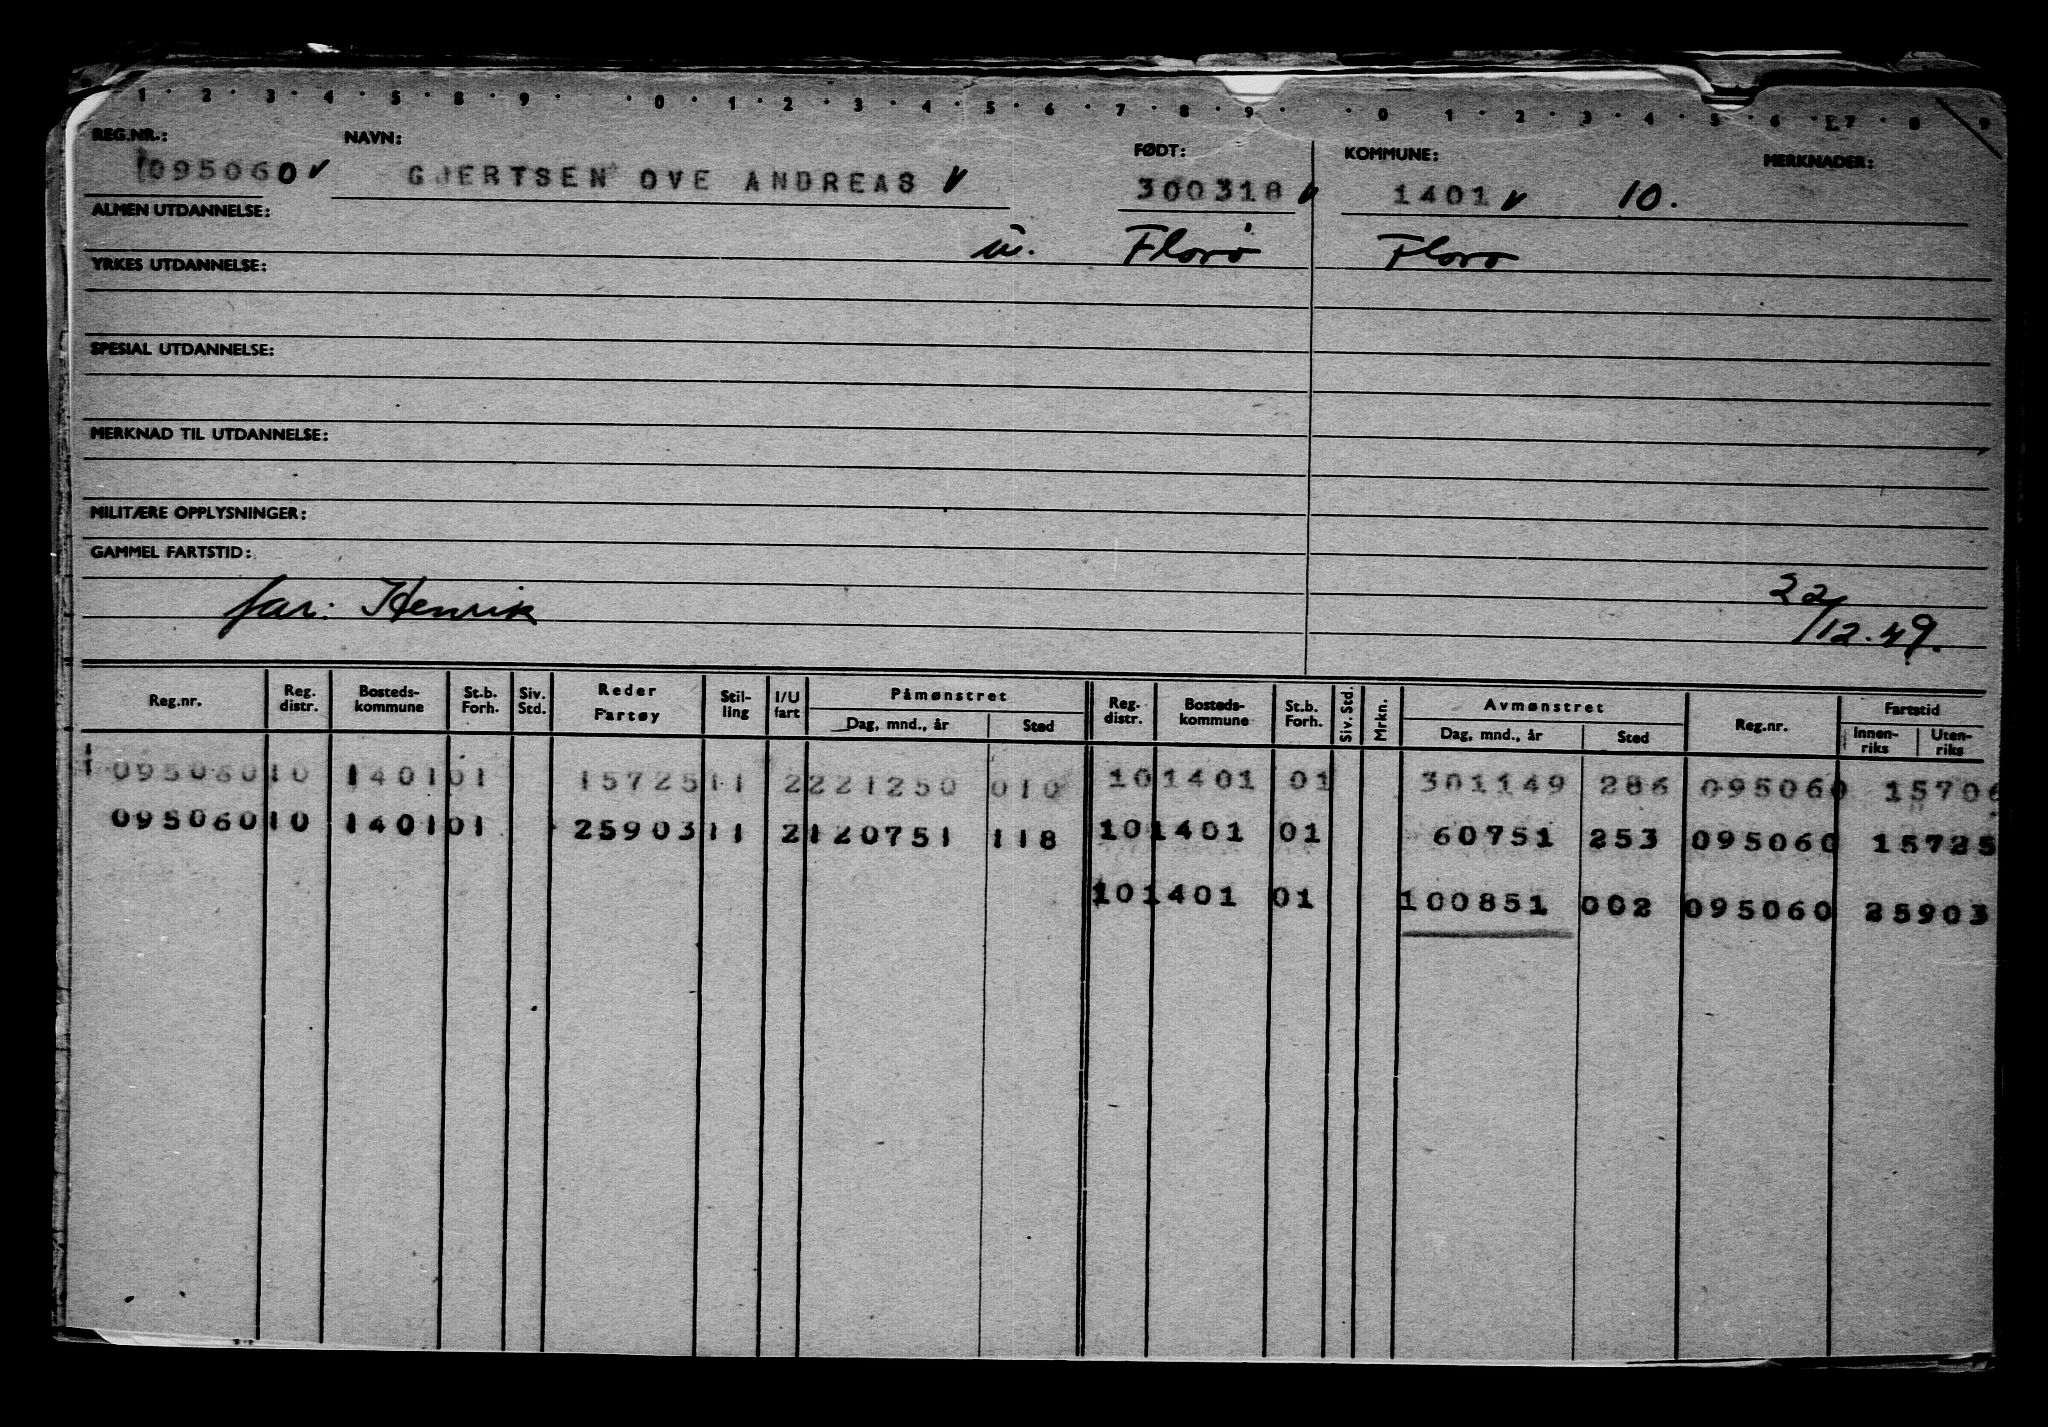 1 · 2 · 3 · 4 · 5 · 8 · 9 · · 0 · 1 · 2 · 3 · 4 · 5 · 6 · 7 · 8 · 9 · · 0 · 1 · 2 · 3 · 4 · 5 · 6 · 7 · 8 · 9
REG.NR.: NAVN: FØDT: KOMMUNE: MERKNADER:
095060 v GJERTSEN OVE ANDREAS v 300318 v 1401 v 10.
ALMEN UTDANNELSE:
u. Florø Florø
YRKES UTDANNELSE:
SPESIAL UTDANNELSE:
MERKNAD TIL UTDANNELSE:
MILITÆRE OPPLYSNINGER:
GAMMEL FARTSTID:
far: Henrik 22/12.49.
Reg.nr. Reg. distr. Bosteds-kommune St.b. Forh. Siv. Std. Reder Fartøy Stil-ling I/U fart Påmønstret Dag, mnd., år Sted Reg. distr. Bosteds-kommune St.b. Forh. Siv. Std. Mrkn. Avmønstret Dag, mnd., år Sted Reg.nr. Fartstid Innen-riks Uten-riks
1 095060 10 1401 01 15725 11 2 221250 010 10 1401 01 301149 286 095060 15706
095060 10 1401 01 25903 11 2 120751 118 10 1401 01 60751 253 095060 15725
10 1401 01 100851 002 095060 25903